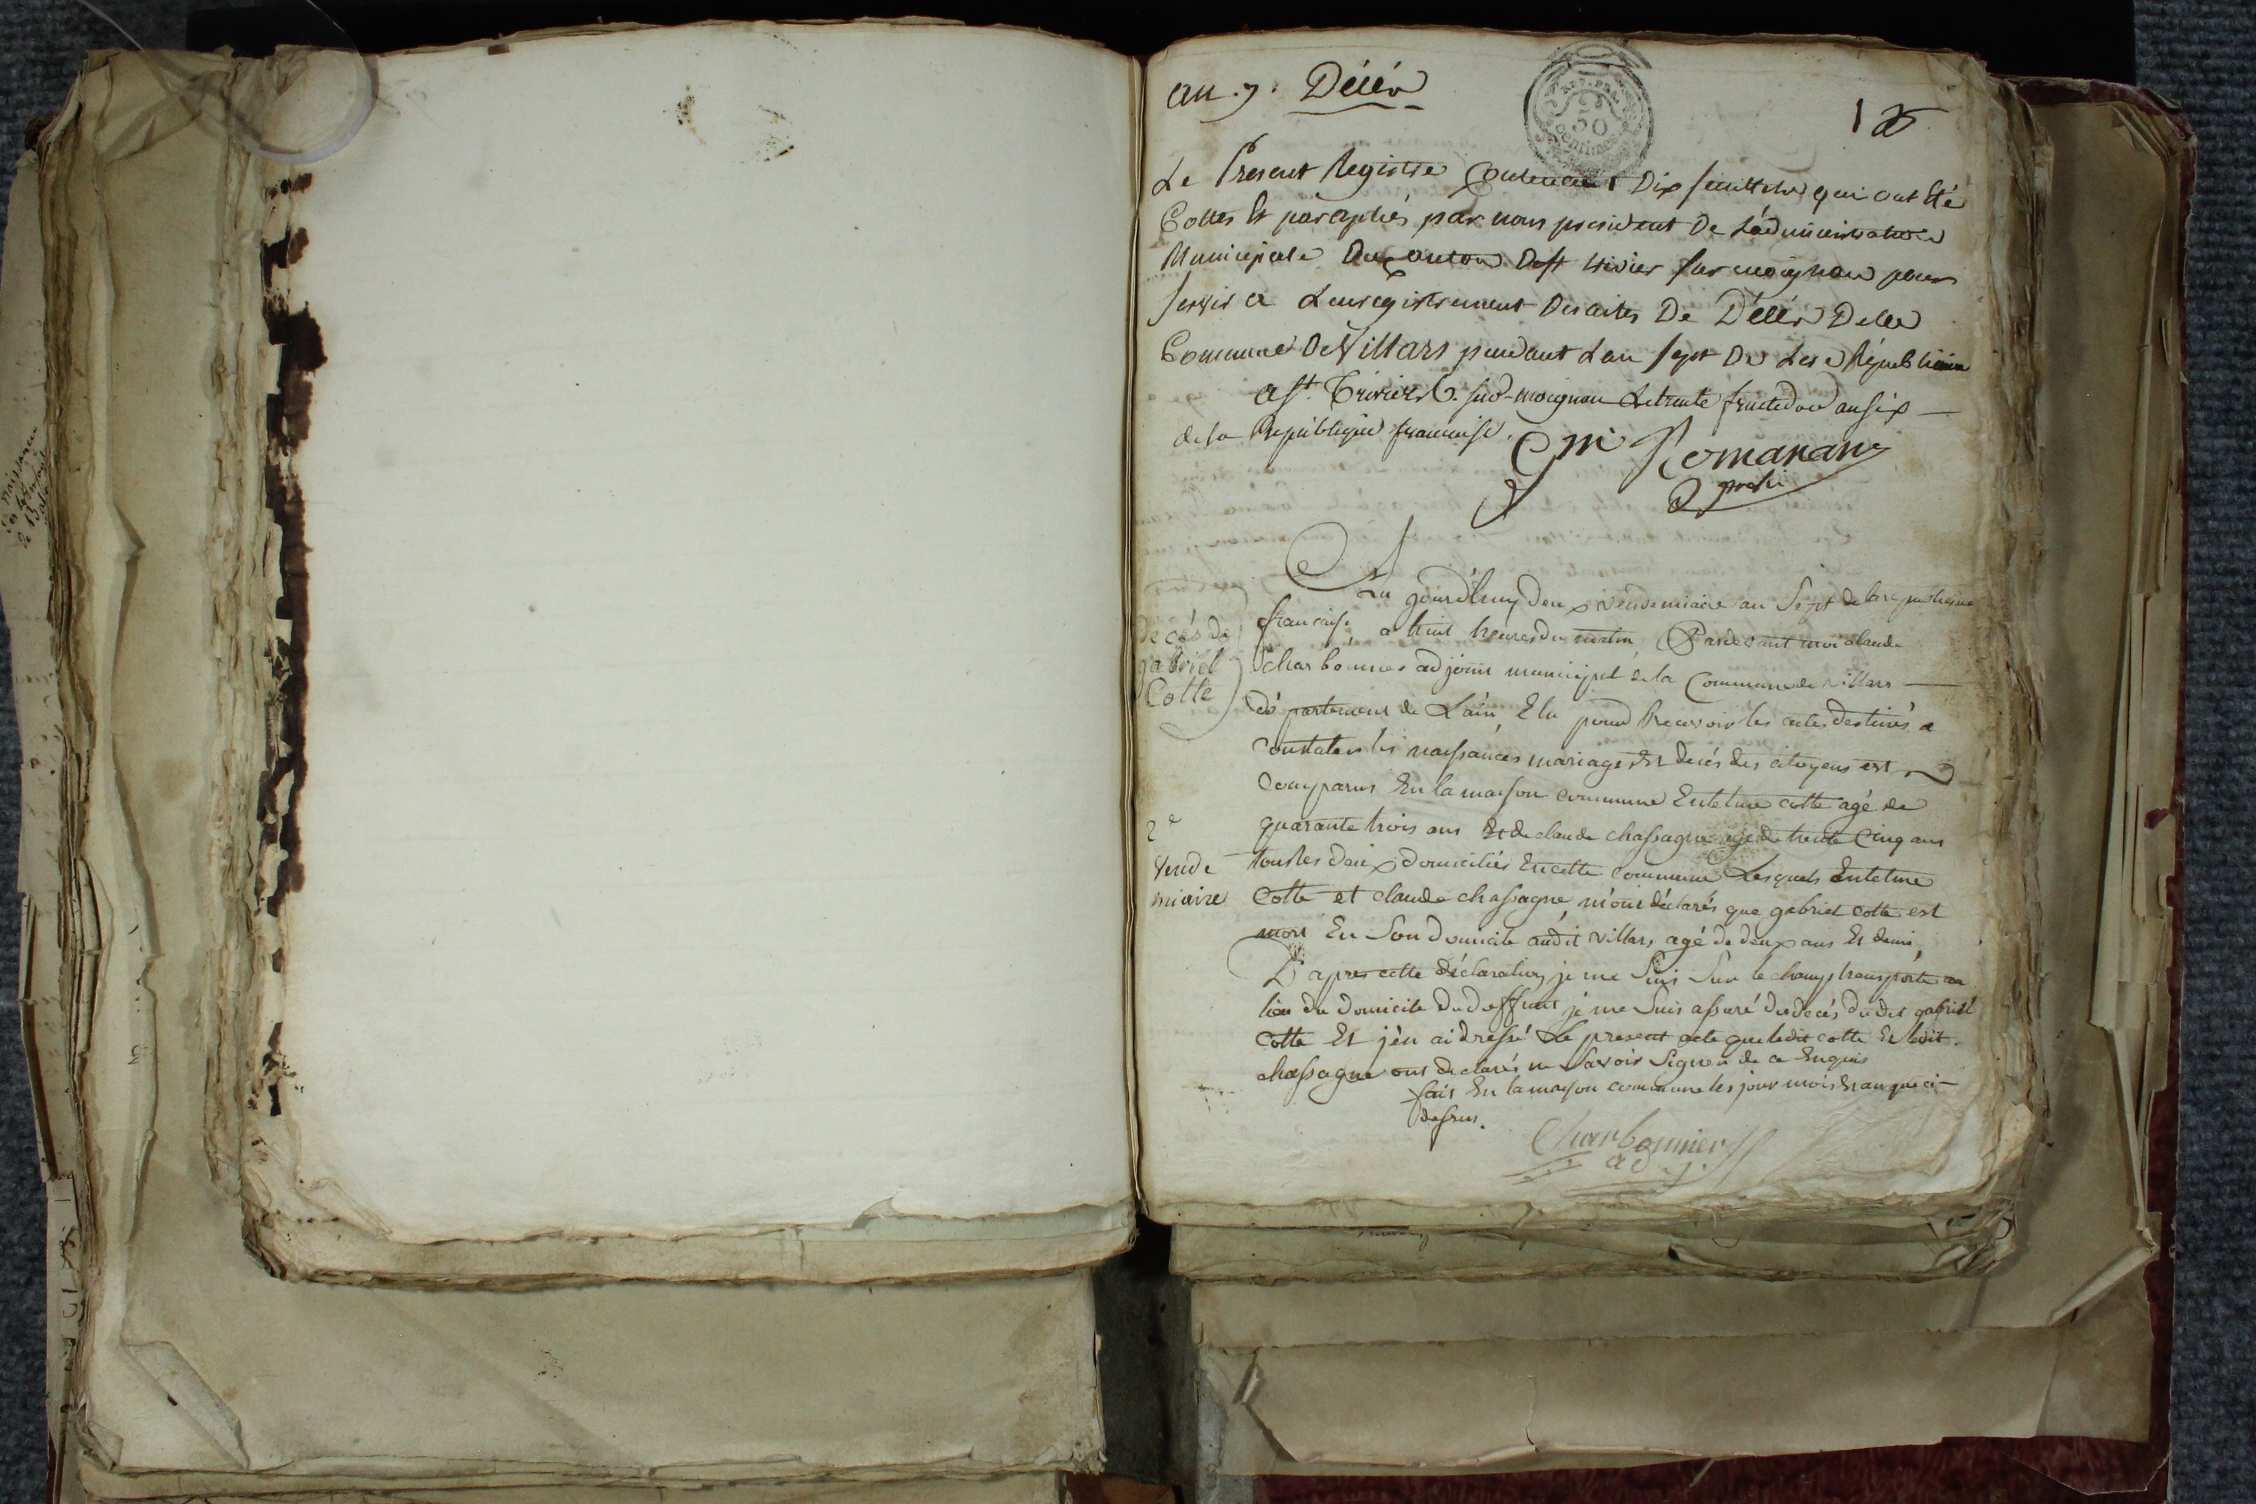 an .7. Décés
REP. FRA.
50
centimes
1
Le Present Registre Contenant Dix feuillets qui ont Eté
Cottés Et paraphés par nous president De L'administration
Municipale Du Canton De St trivier sur moignan pour
servir a Lenregistrement Des actes De Décés De la
Commune De Villars pendant Lan sept De La République
a St. Trivier S. sur-moignan Le trente fructidor an six —
de la République francaise.
Romanans
presdt
Au jourd'huy deux vendemiaire an Sept de la republique
francaise, a huit heures du matin, Pardevant moi claude
charbonnier adjoint municipal de la Commune de villars —
département de L'ain, Elu pour Recevoir les actes destinés a
Constater les naissances mariages Et décés des citoyens est
Comparus En la maison commune Entelme cotte agé de
quarante trois ans Et de claude chassagne agé de trente Cinq ans
tous les deux domiciliés En cette commune Lesquels Entelme
Cotte et claude chassagne m'ont déclarés que gabriel cotte est
mort En Son domicile audit villars, agé de deux ans Et demi,
D'apres cette déclaration, je me Suis Sur le champ transporté au
lieu du domicile du deffunt, je me Suis assuré du decés du dit gabriel
Cotte Et j'en ai dressé Le present acte que ledit cotte Et ledit
chassagne ont declarés ne Savoir Signer de ce Enquis
fait En la maison commune les jour mois Et an que ci-
dessus.
Charbonnier
adj.
decés de
gabriel
Cotte
2e
vende
miaire